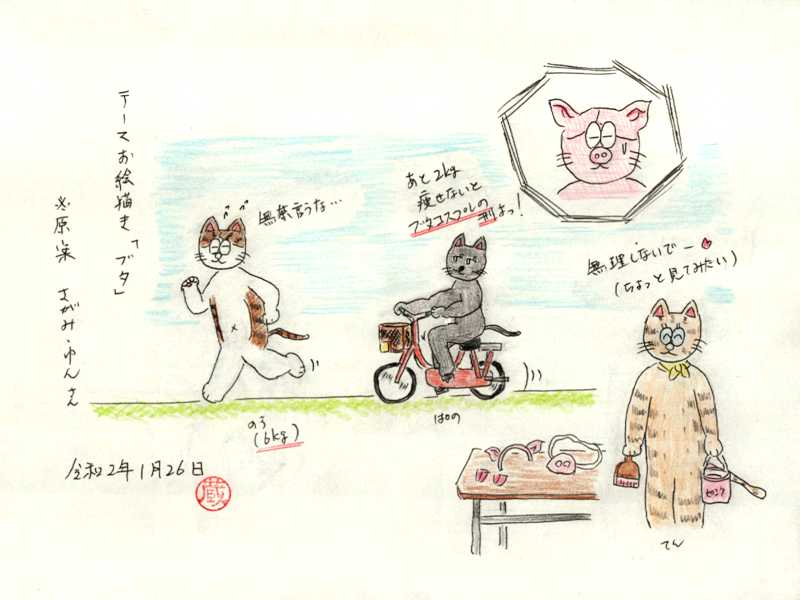 テーマお絵描き「ブタ」
※原案 さがみ・ゆんさん
無茶言うな…
あと2kg
痩せないと
ブタコスプレの
刑よっ!
無理しないでー
(ちょっと見てみたい)
のろ
(6kg)
ぱの
ピンク
てん
令和2年1月26日
蔵